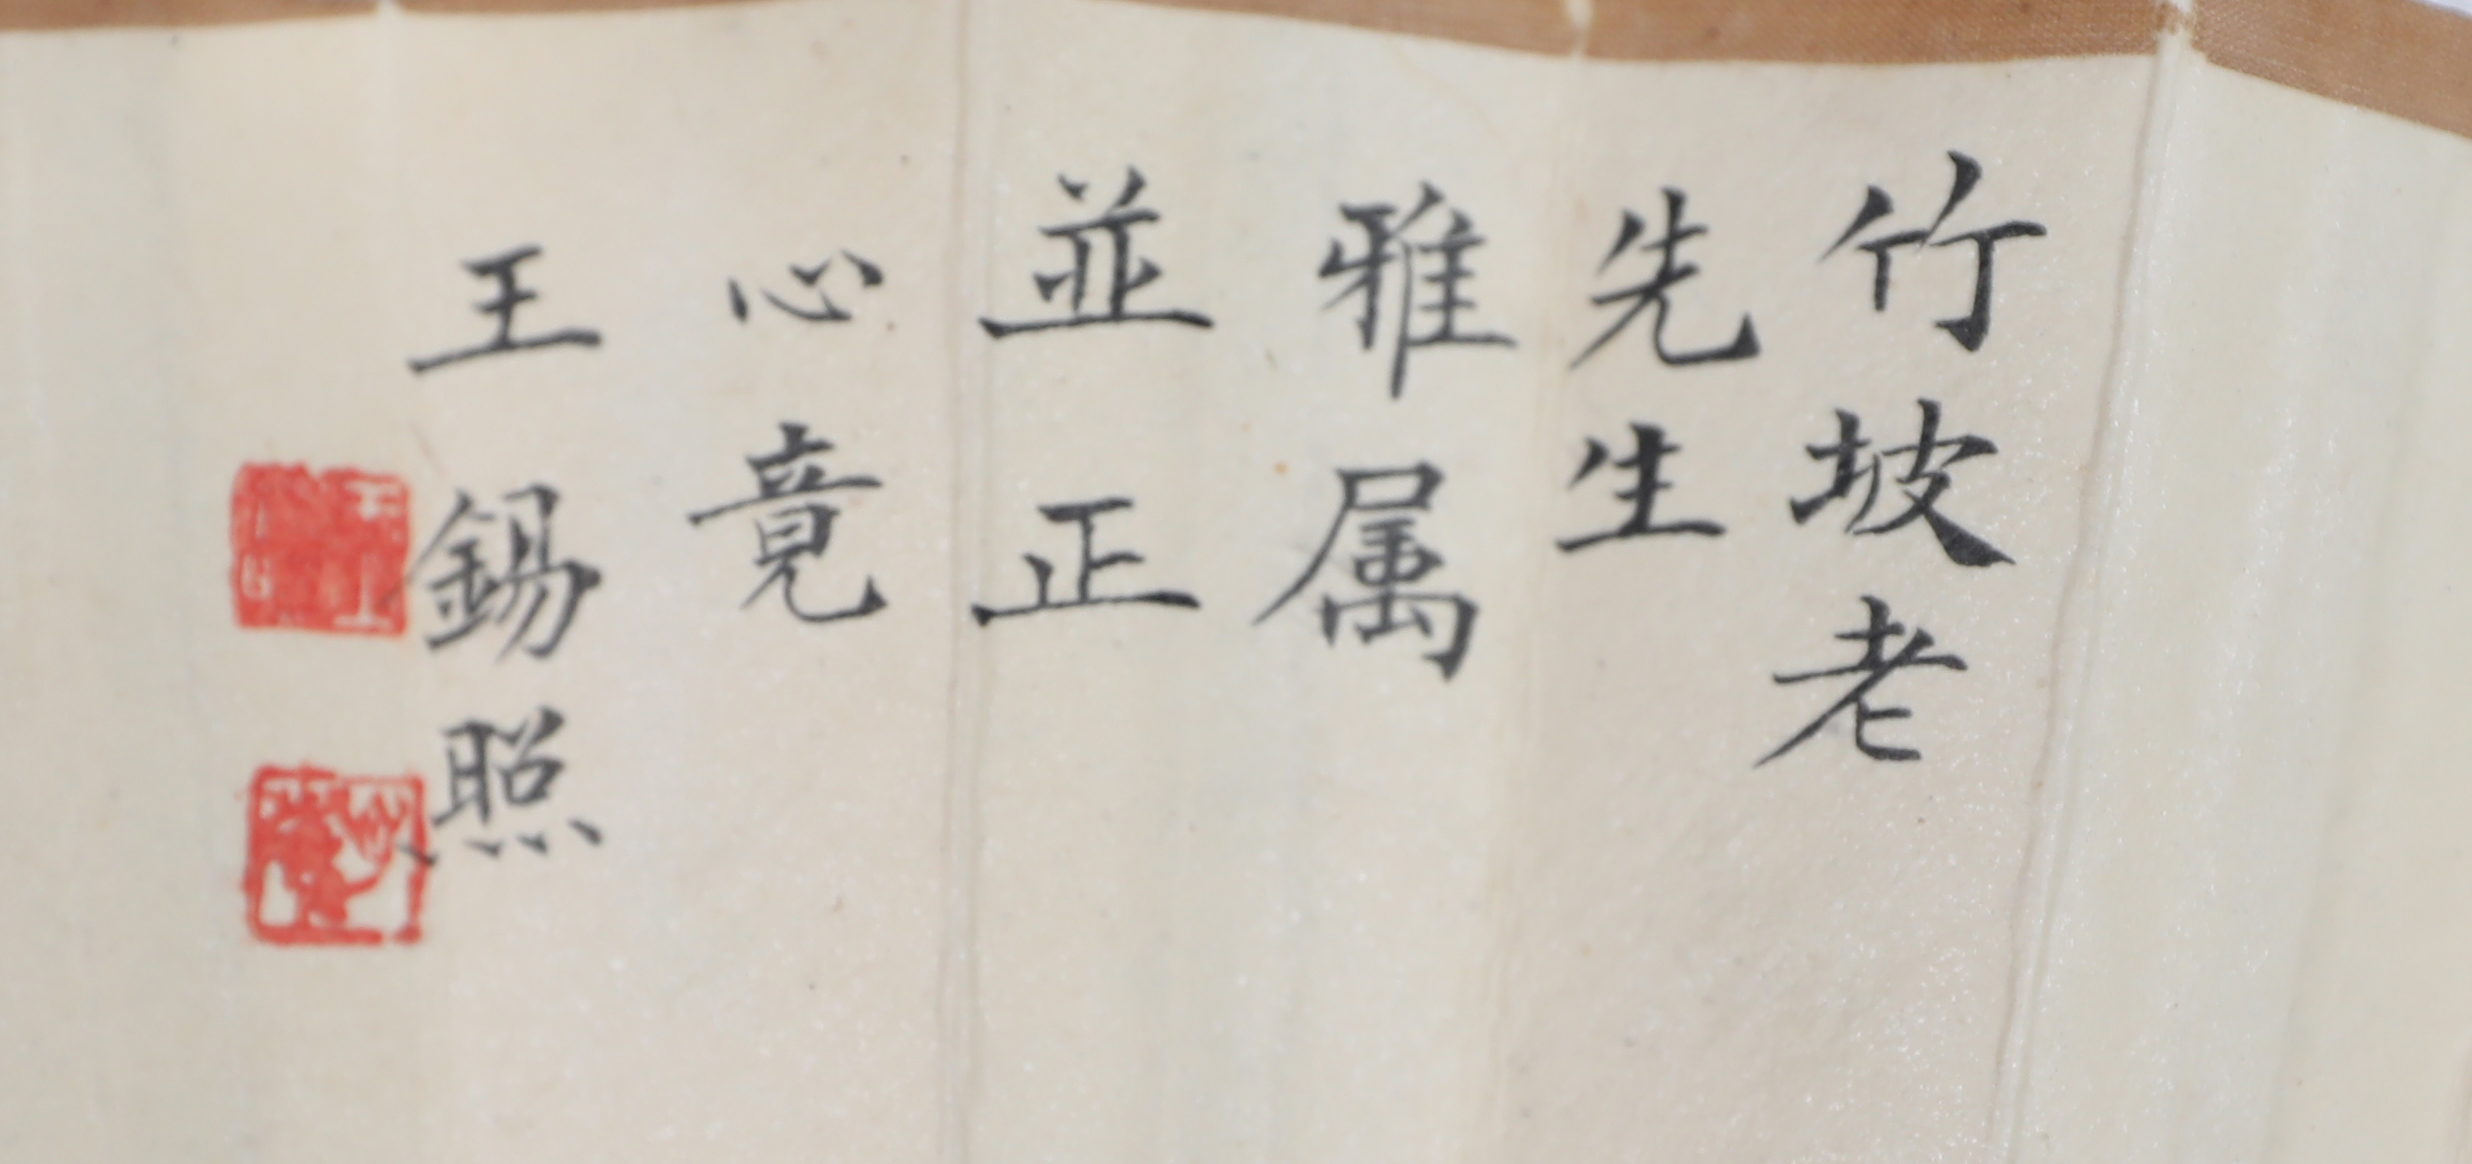 竹坡老
先生
雅属
並正
心竟
王錫照